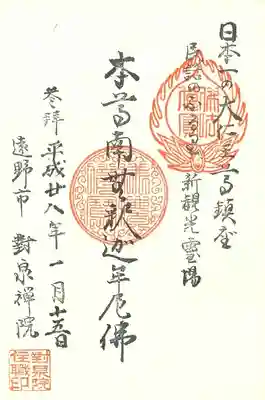 日本一の大仁 鎮座
民話のふるさと新観光霊場
本尊南無釈迦牟尼佛
参拝 平成廿八年一月十五日
遠野市 對泉禅院
對泉院
住職印